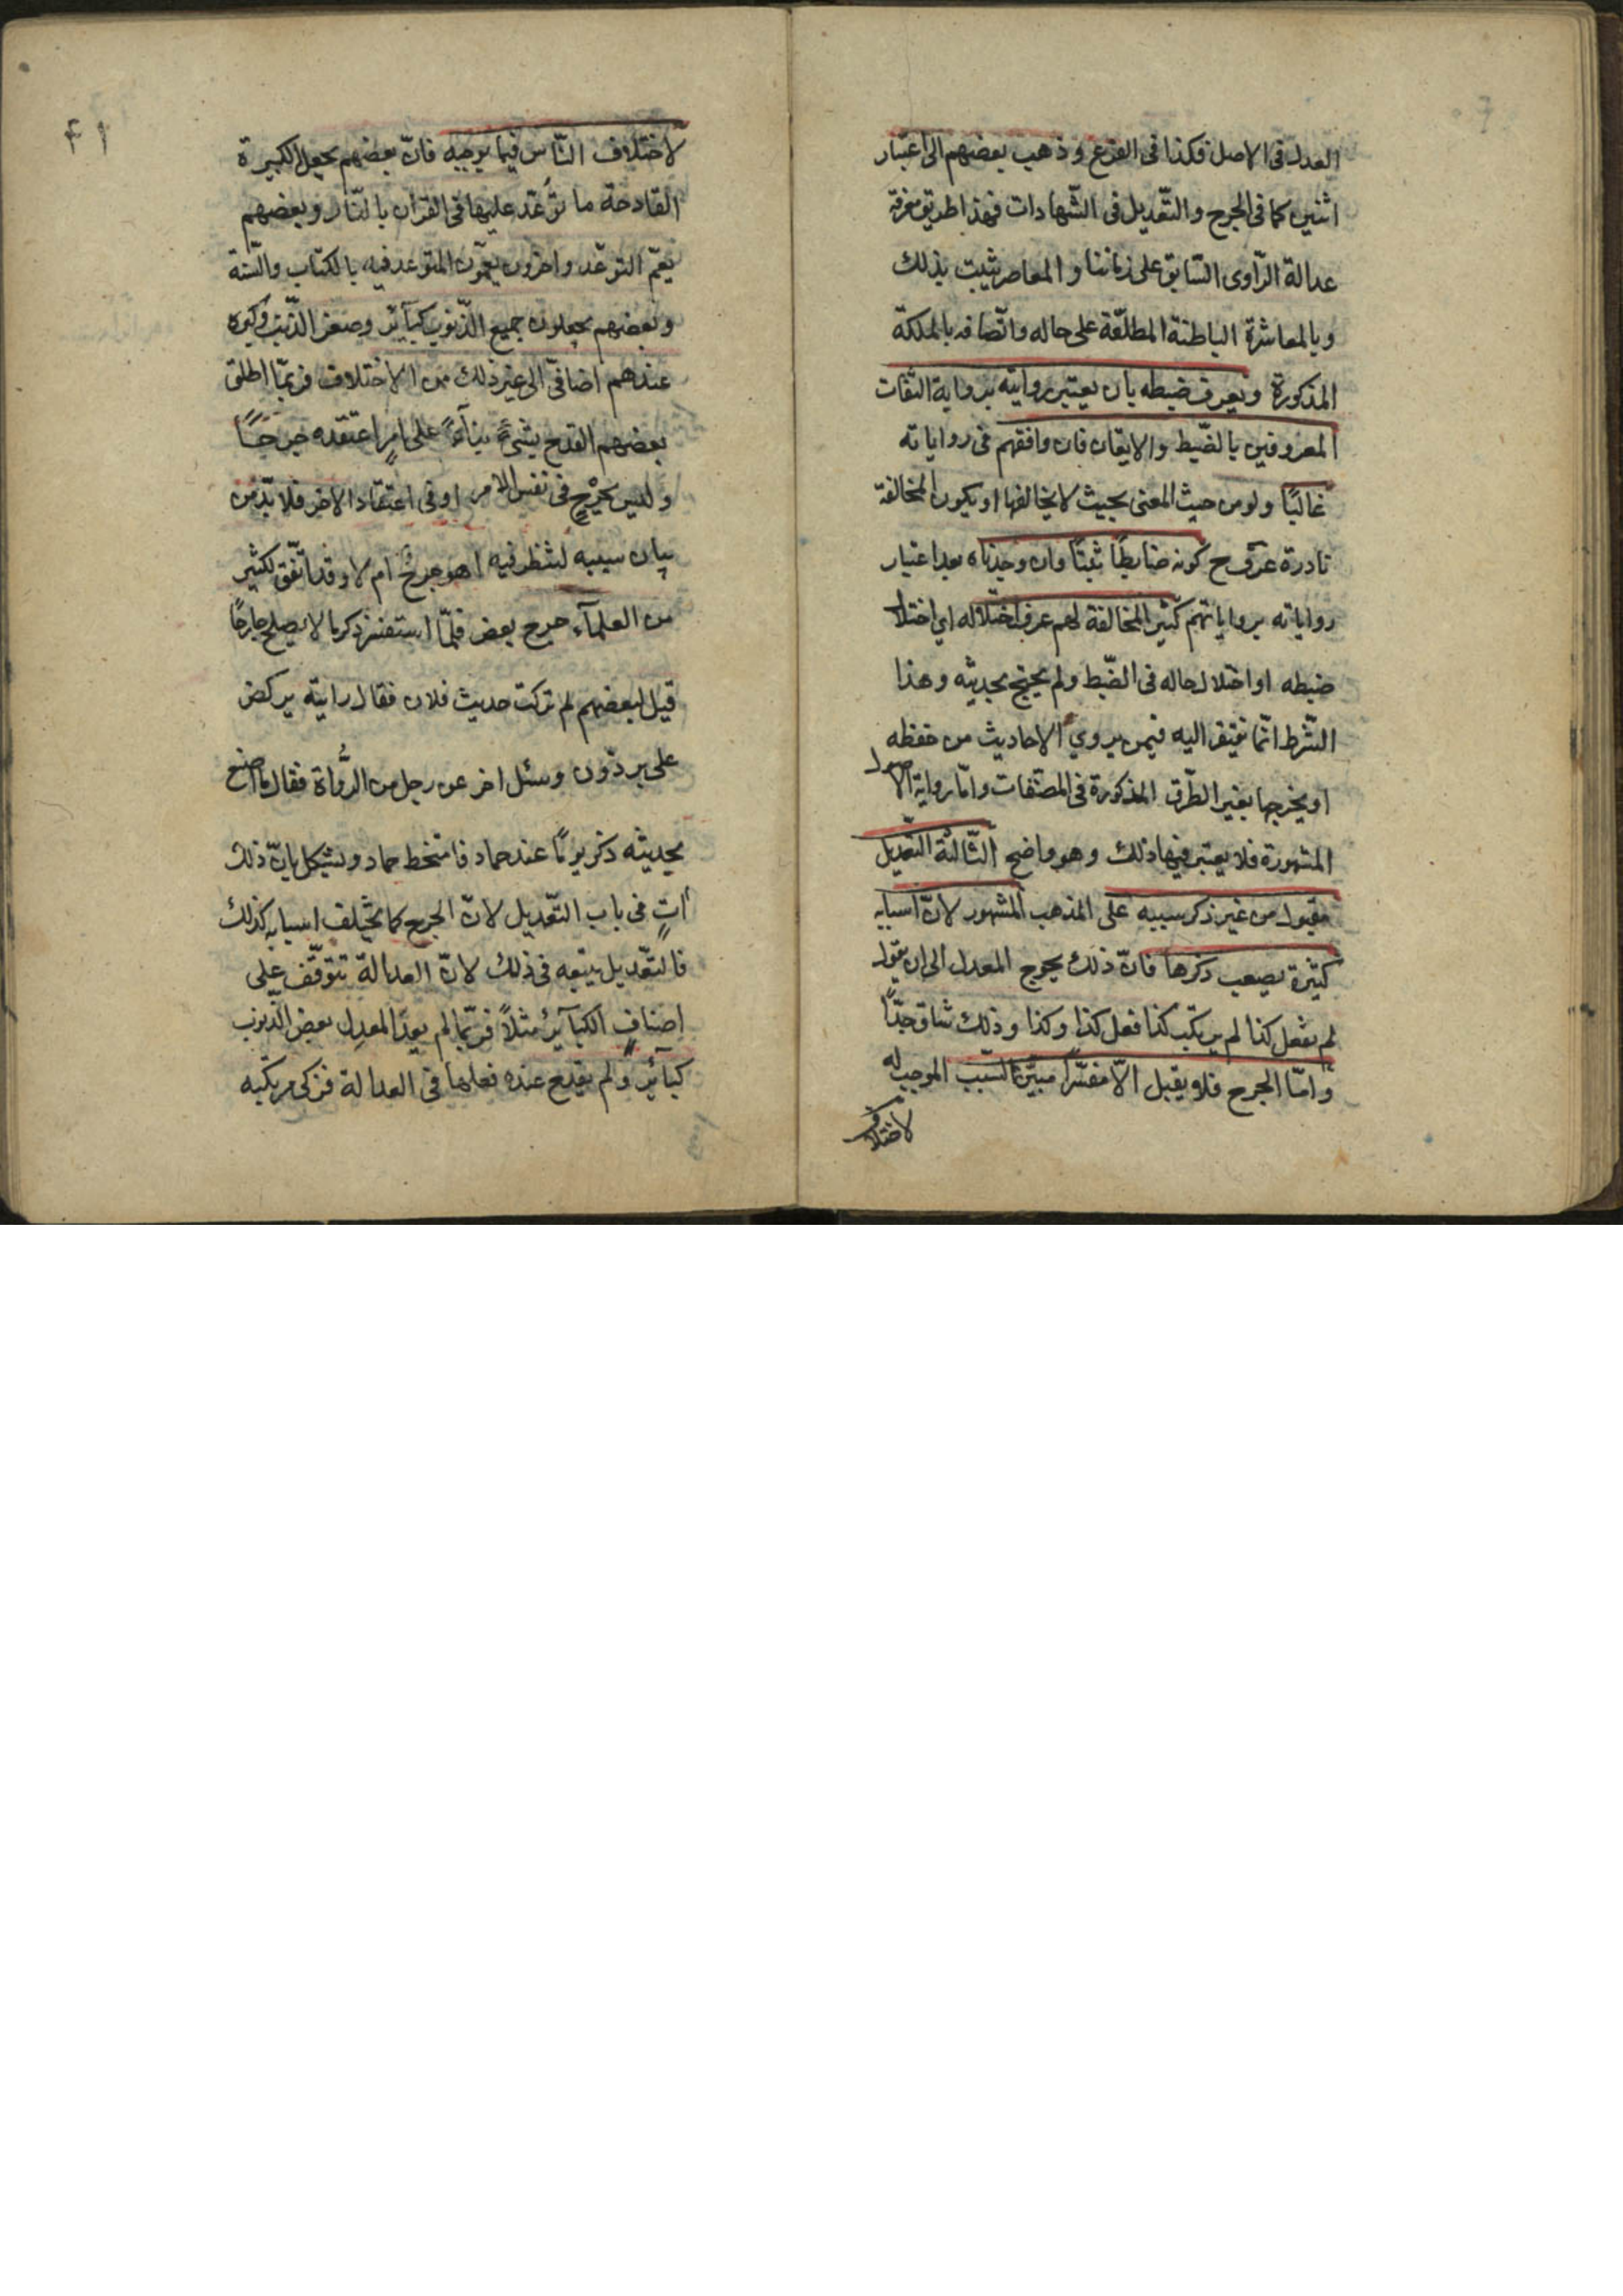 العدل فى الاصل فكذا فى الفرع و ذهب بعضهم الى اعتبار
اثنين كما فى الجرح و التّعديل فى الشّهادات فهذا طريق معرفة
عدالة الرّاوى السّابق على زماننا و المعاصر يثبت بذلك
و بالمعاشرة الباطنة المطلّعة على حاله و اتّصافه بالملكة
المذكورة و يعرف ضبطه بان يعتبر روايته برواية الثقات
المعروفين بالضّبط و الاتقان فان وافقهم فى رواياته
غالبًا و لو من حيث المعنى بحيث لا يخالفها او يكون المخالفة
نادرة عرف ح كونه ضابطًا ثبتًا و ان وجدناه بعد اعتبار
رواياته برواياتهم كثير المخالفة لهم عرف اختلاله اى اختلال
ضبطه او اختلال حاله فى الضّبط و لم يحتج بحديثه و هذا
الشّرط انّما يفتقر اليه فيمن يروي الاحاديث من حفظه
او يخرجها بغير الطّرق المذكورة فى المصنّفات و امّا رواية الاصول
المشهورة فلا يعتبر فيها ذلك و هو واضح الثّالثة التّعديل
مقبول من غير ذكر سببه على المذهب المشهور لانّ اسبابه
كثيرة يصعب ذكرها فانّ ذلك يحوج المعدل الى ان يقول
لم يفعل كذا لم يرتكب كذا فعل كذا و كذا و ذلك شاق جدًّا
و امّا الجرح فلا يقبل الّا مفسّرًا مبيّن السّبب الموجب له
لاختلاف
٢١
لاختلاف النّاس فيما يوجبه فانّ بعضهم يجعل الكبيرة
القادحة ما توعّد عليها فى القرآن بالنّار و بعضهم
يعمّ التوعّد و اخرون يعمّون المتوعد فيه بالكتاب و السّنة
و بعضهم يجعلون جميع الذّنوب كبائر و صغر الذّنب و كبره
عندهم اضافىّ الى غير ذلك من الاختلاف فربّما اطلق
بعضهم القدح بشئ بناءً على امرٍ اعتقده جرحًا
و ليس بجرحٍ فى نفس الامر او فى اعتقاد الاخر فلا بدّ من
بيان سببه لينظر فيه اهو جرح ام لا و قد اتّفق لكثير
من العلمآء جرح بعض فلمّا استفسر ذكر ما لا يصلح جارحًا
قيل لبعضهم لم تركت حديث فلان فقال رايته يركض
على برذون و سئل اخر عن رجل من الرُّواة فقال ما اصنع
بحديثه ذكر يومًا عند حماد فامتخط حماد و يشكل بانّ ذلك
اتٍ فى باب التّعديل لانّ الجرح كما يختلف اسبابه كذلك
فالتّعديل يتبعه فى ذلك لانّ العدالة تتوقّف على
اصناف الكبآئر مثلًا فربّما لم يعدّ المعدِل بعض الذّنوب
كبآئر و لم يقدح عنده فعلها فى العدالة فزكى مرتكبه